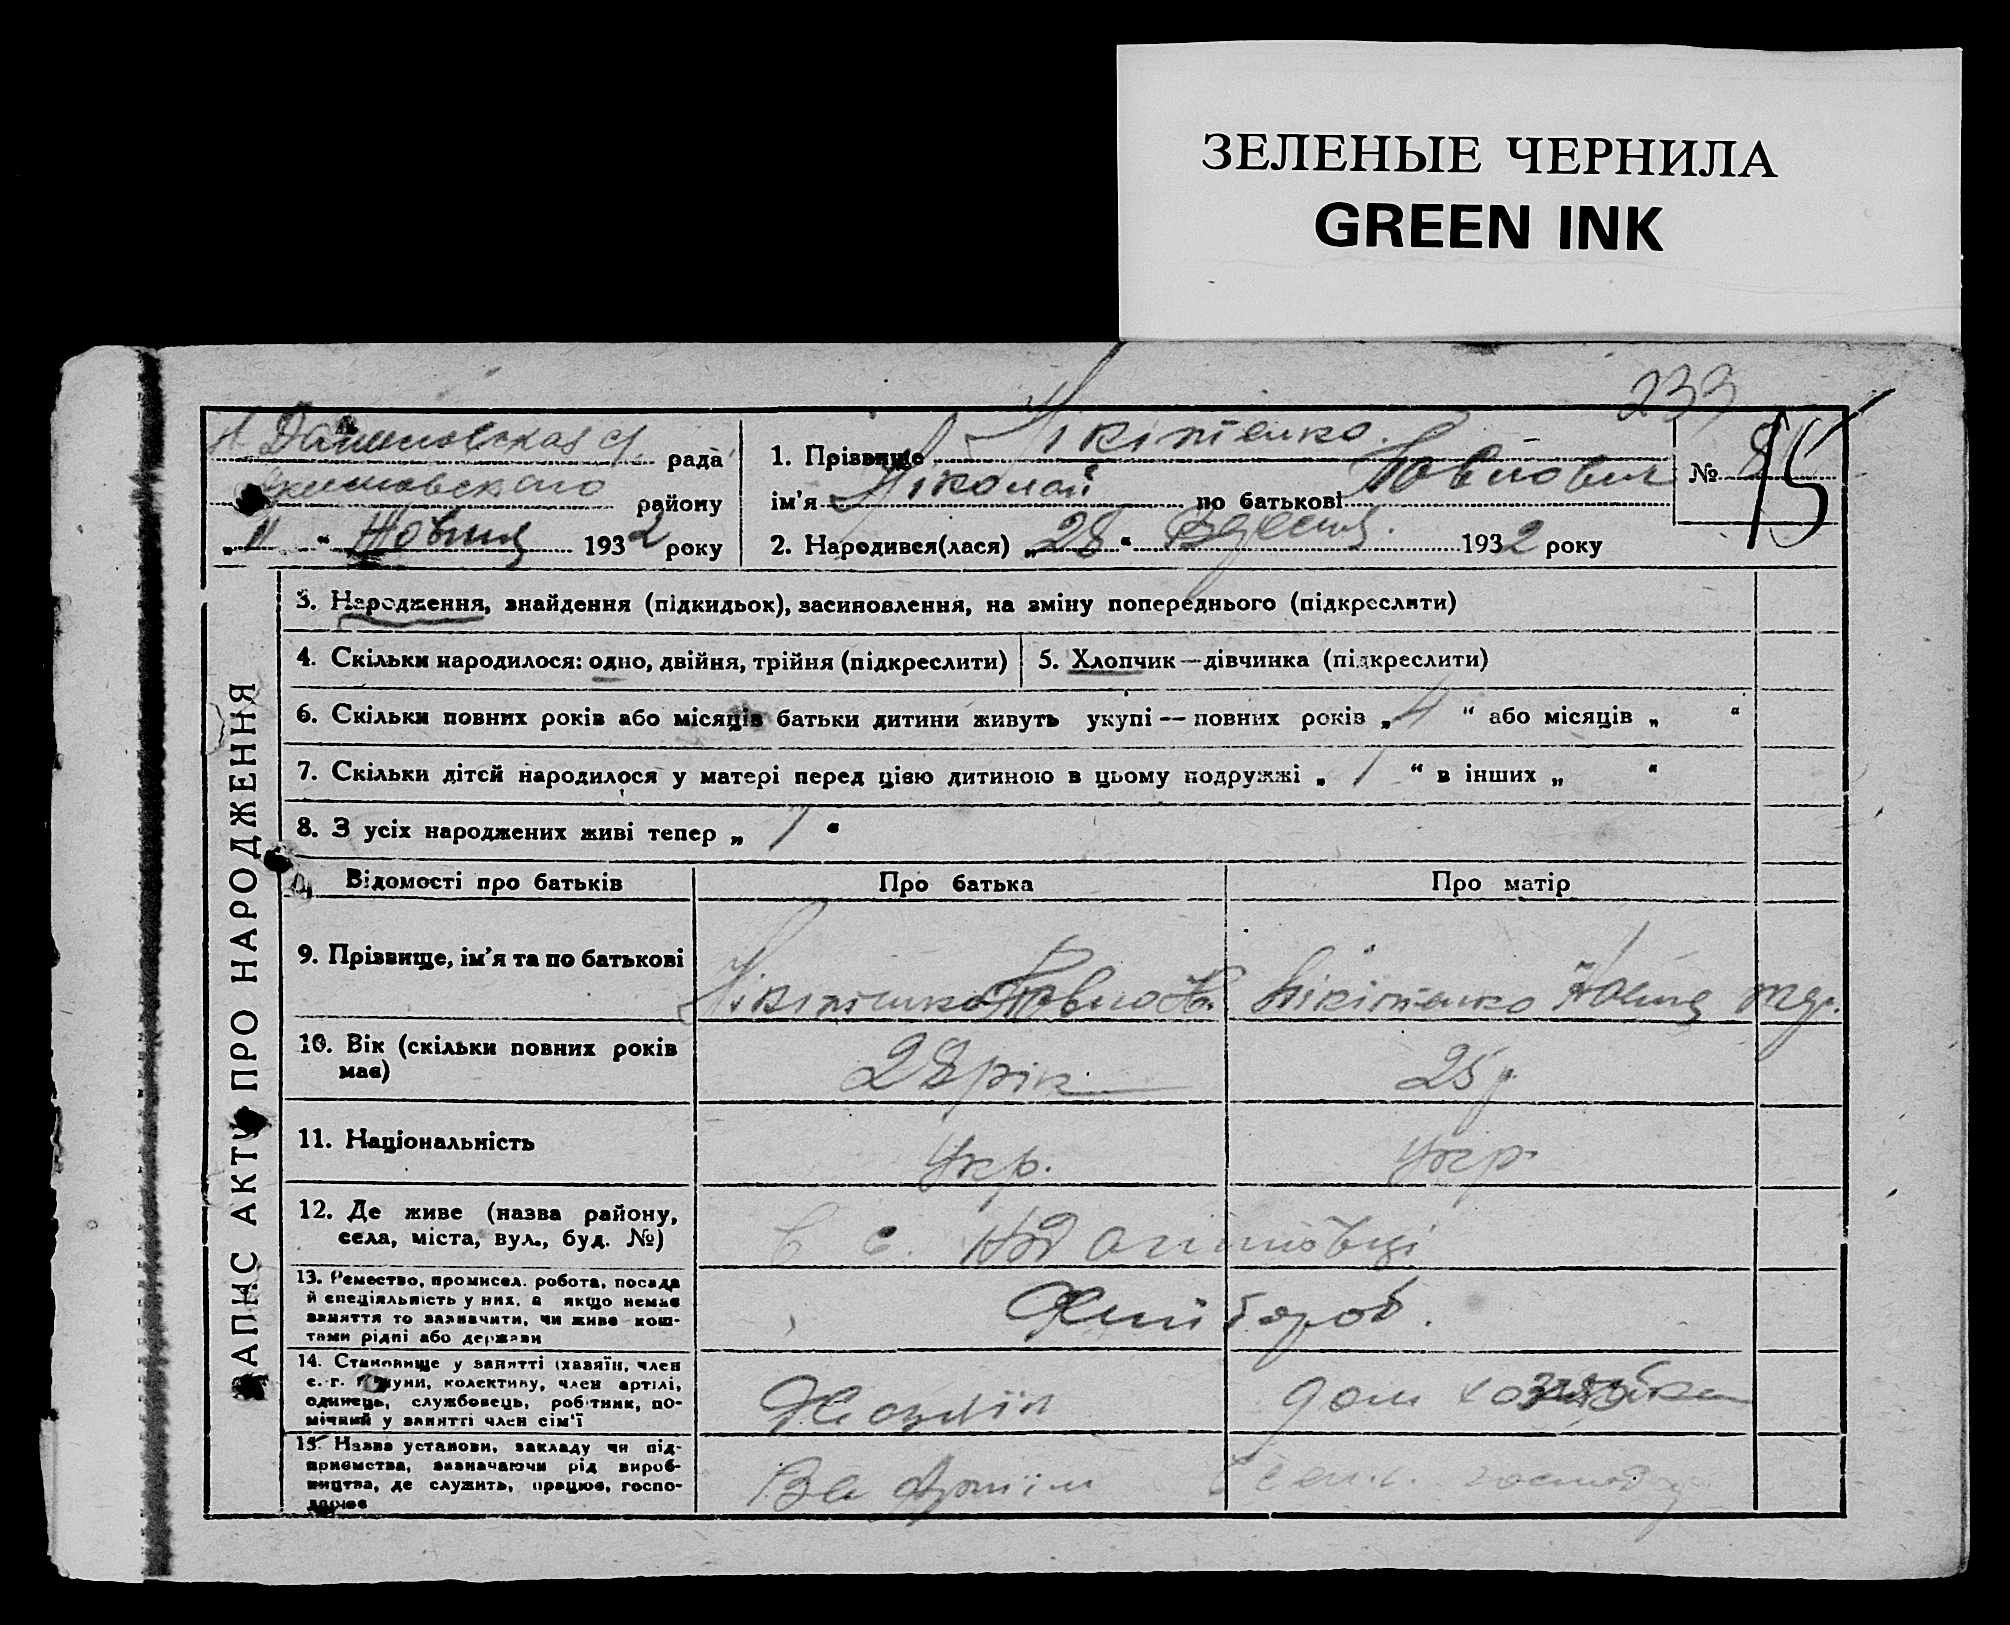 ЗЕЛЕНЫЕ ЧЕРНИЛА
GREEN INK
233
рада
району
„11“ Жовтня 1932 року
1. Прізвище Нікітенко.
ім'я Ніколай по батькові Павлович
№ 15
2. Народився(лася) „28“ Вересня. 1932 року
ЗАПИС АКТУ ПРО НАРОДЖЕННЯ
3. Народження, знайдення (підкидьок), засиновлення, на зміну попереднього (підкреслити)
4. Скільки народилося: одно, двійня, трійня (підкреслити)
5. Хлопчик—дівчинка (підкреслити)
6. Скільки повних років або місяців батьки дитини живуть укупі — повних років „4“ або місяців „ “
7. Скільки дітей народилося у матері перед цією дитиною в цьому подружжі „1“ в інших „ “
8. З усіх народжених живі тепер „1“
Відомості про батьків
Про батька
Про матір
9. Прізвище, ім'я та по батькові
Нікітенко Павло
Нікітенко
10. Вік (скільки повних років
має)
28 рік
25 р
11. Національність
Укр.
Укр
12. Де живе (назва району,
села, міста, вул., буд. №)
с.
13. Ремество, промисел. робота, посада
й спеціяльність у них, а якщо немає
заняття то зазначити, чи живе кош-
тами рідні або держави
14. Становище у занятті (хазяїн, член
с.-г. комуни, колективу, член артілі,
одинець, службовець, робітник, по-
мічний у занятті член сім'ї
дом хозяйка
15. Назва установи, закладу чи під-
приємства, зазначаючи рід вироб-
ництва, де служить, працює, госпо-
дарює